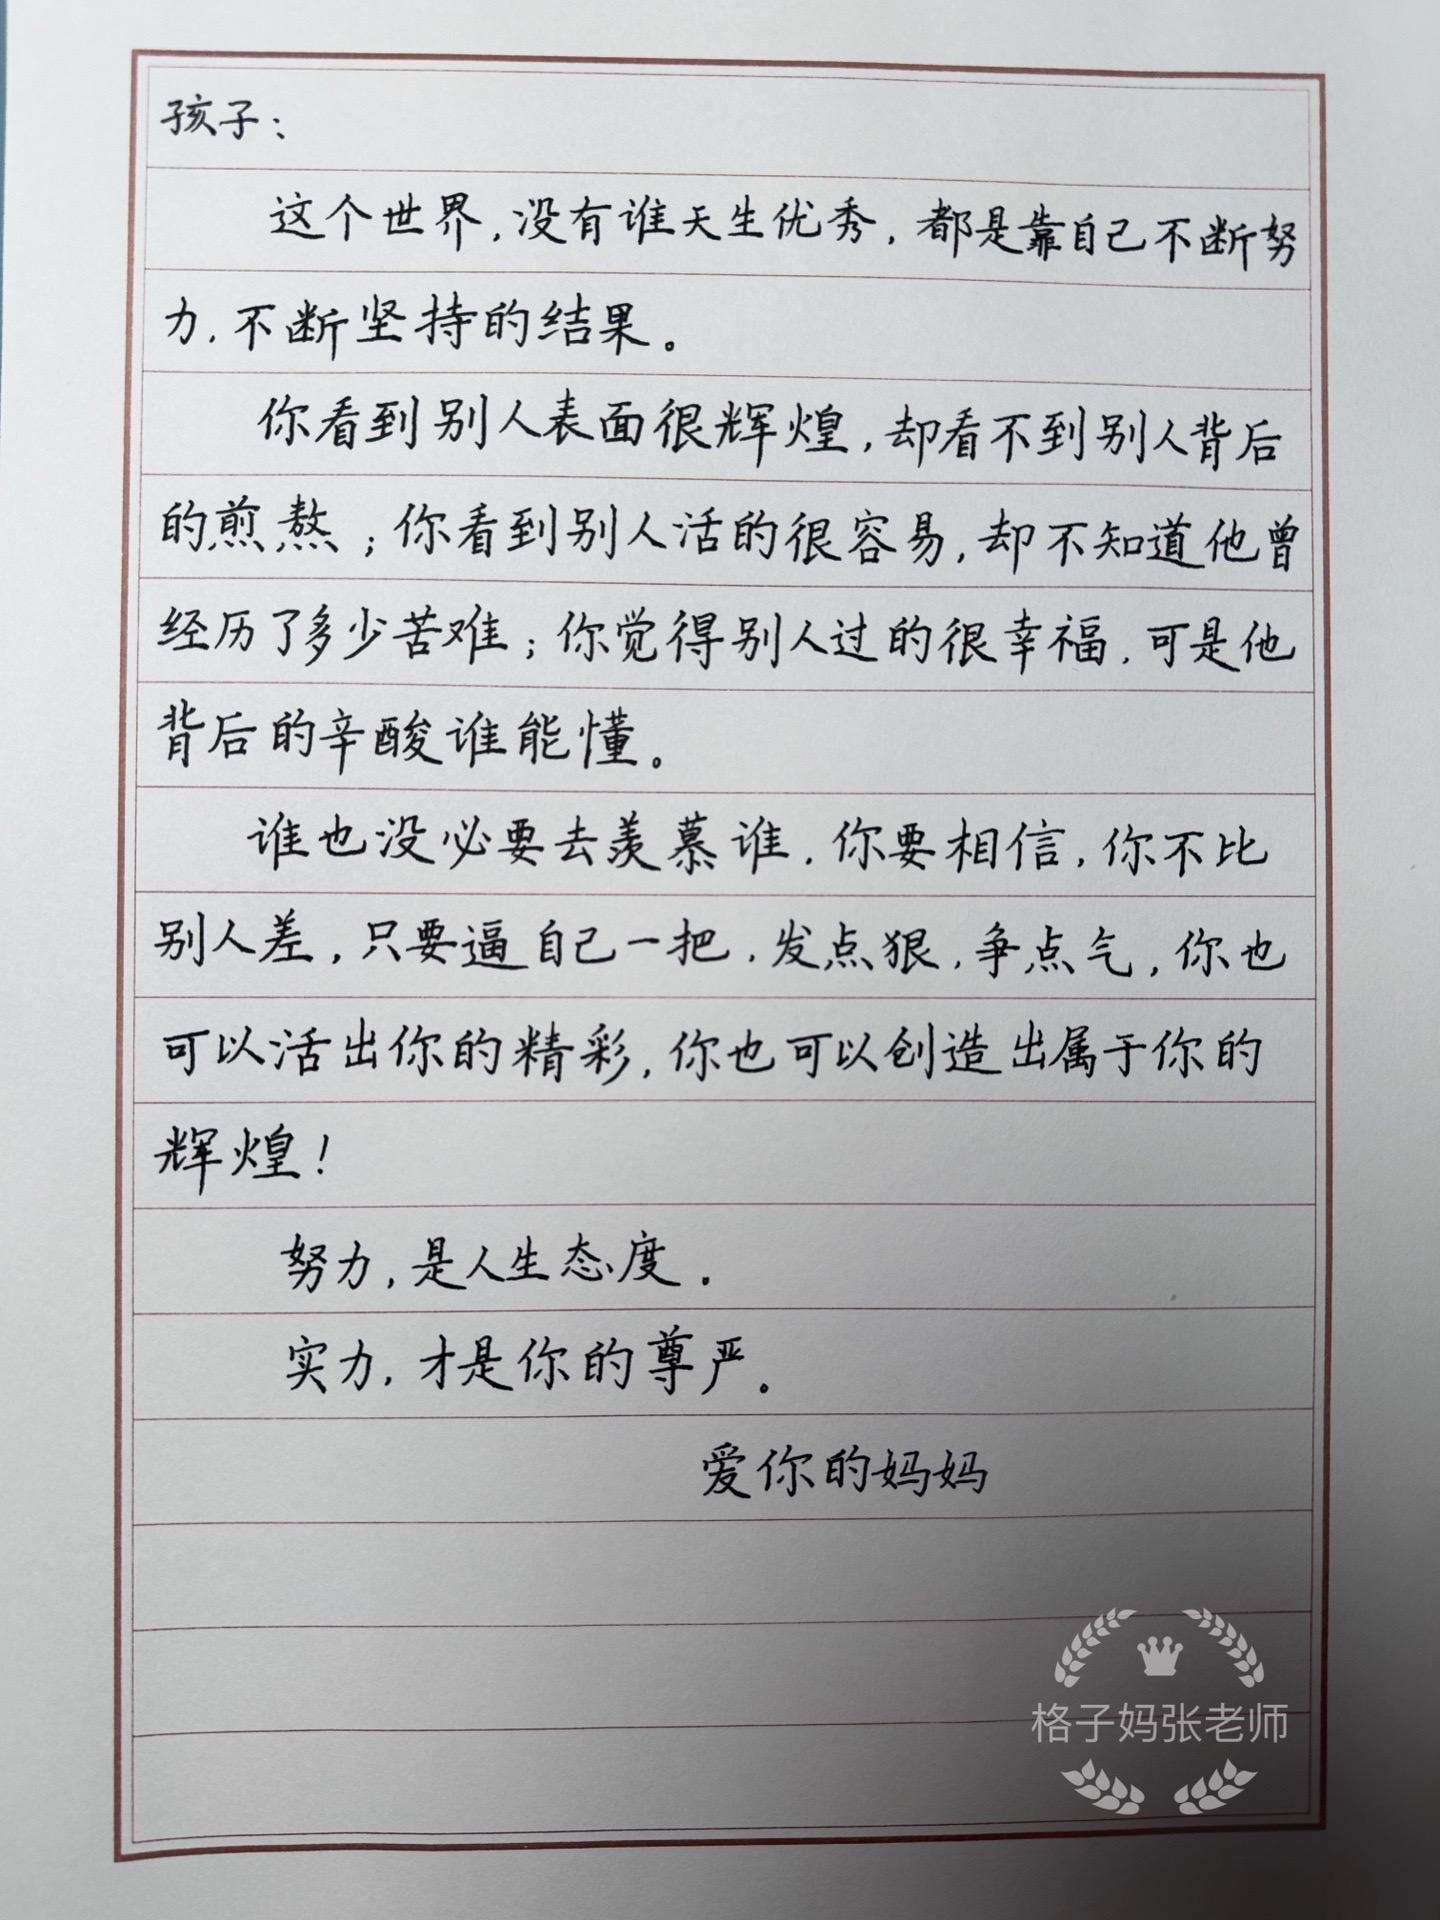 孩子：
这个世界，没有谁天生优秀，都是靠自己不断努
力，不断坚持的结果。
你看到别人表面很辉煌，却看不到别人背后
的煎熬；你看到别人活的很容易，却不知道他曾
经历了多少苦难；你觉得别人过的很幸福，可是他
背后的辛酸谁能懂。
谁也没必要去羡慕谁，你要相信，你不比
别人差，只要逼自己一把，发点狠，争点气，你也
可以活出你的精彩，你也可以创造出属于你的
辉煌！
努力，是人生态度。
实力，才是你的尊严。
爱你的妈妈
格子妈张老师